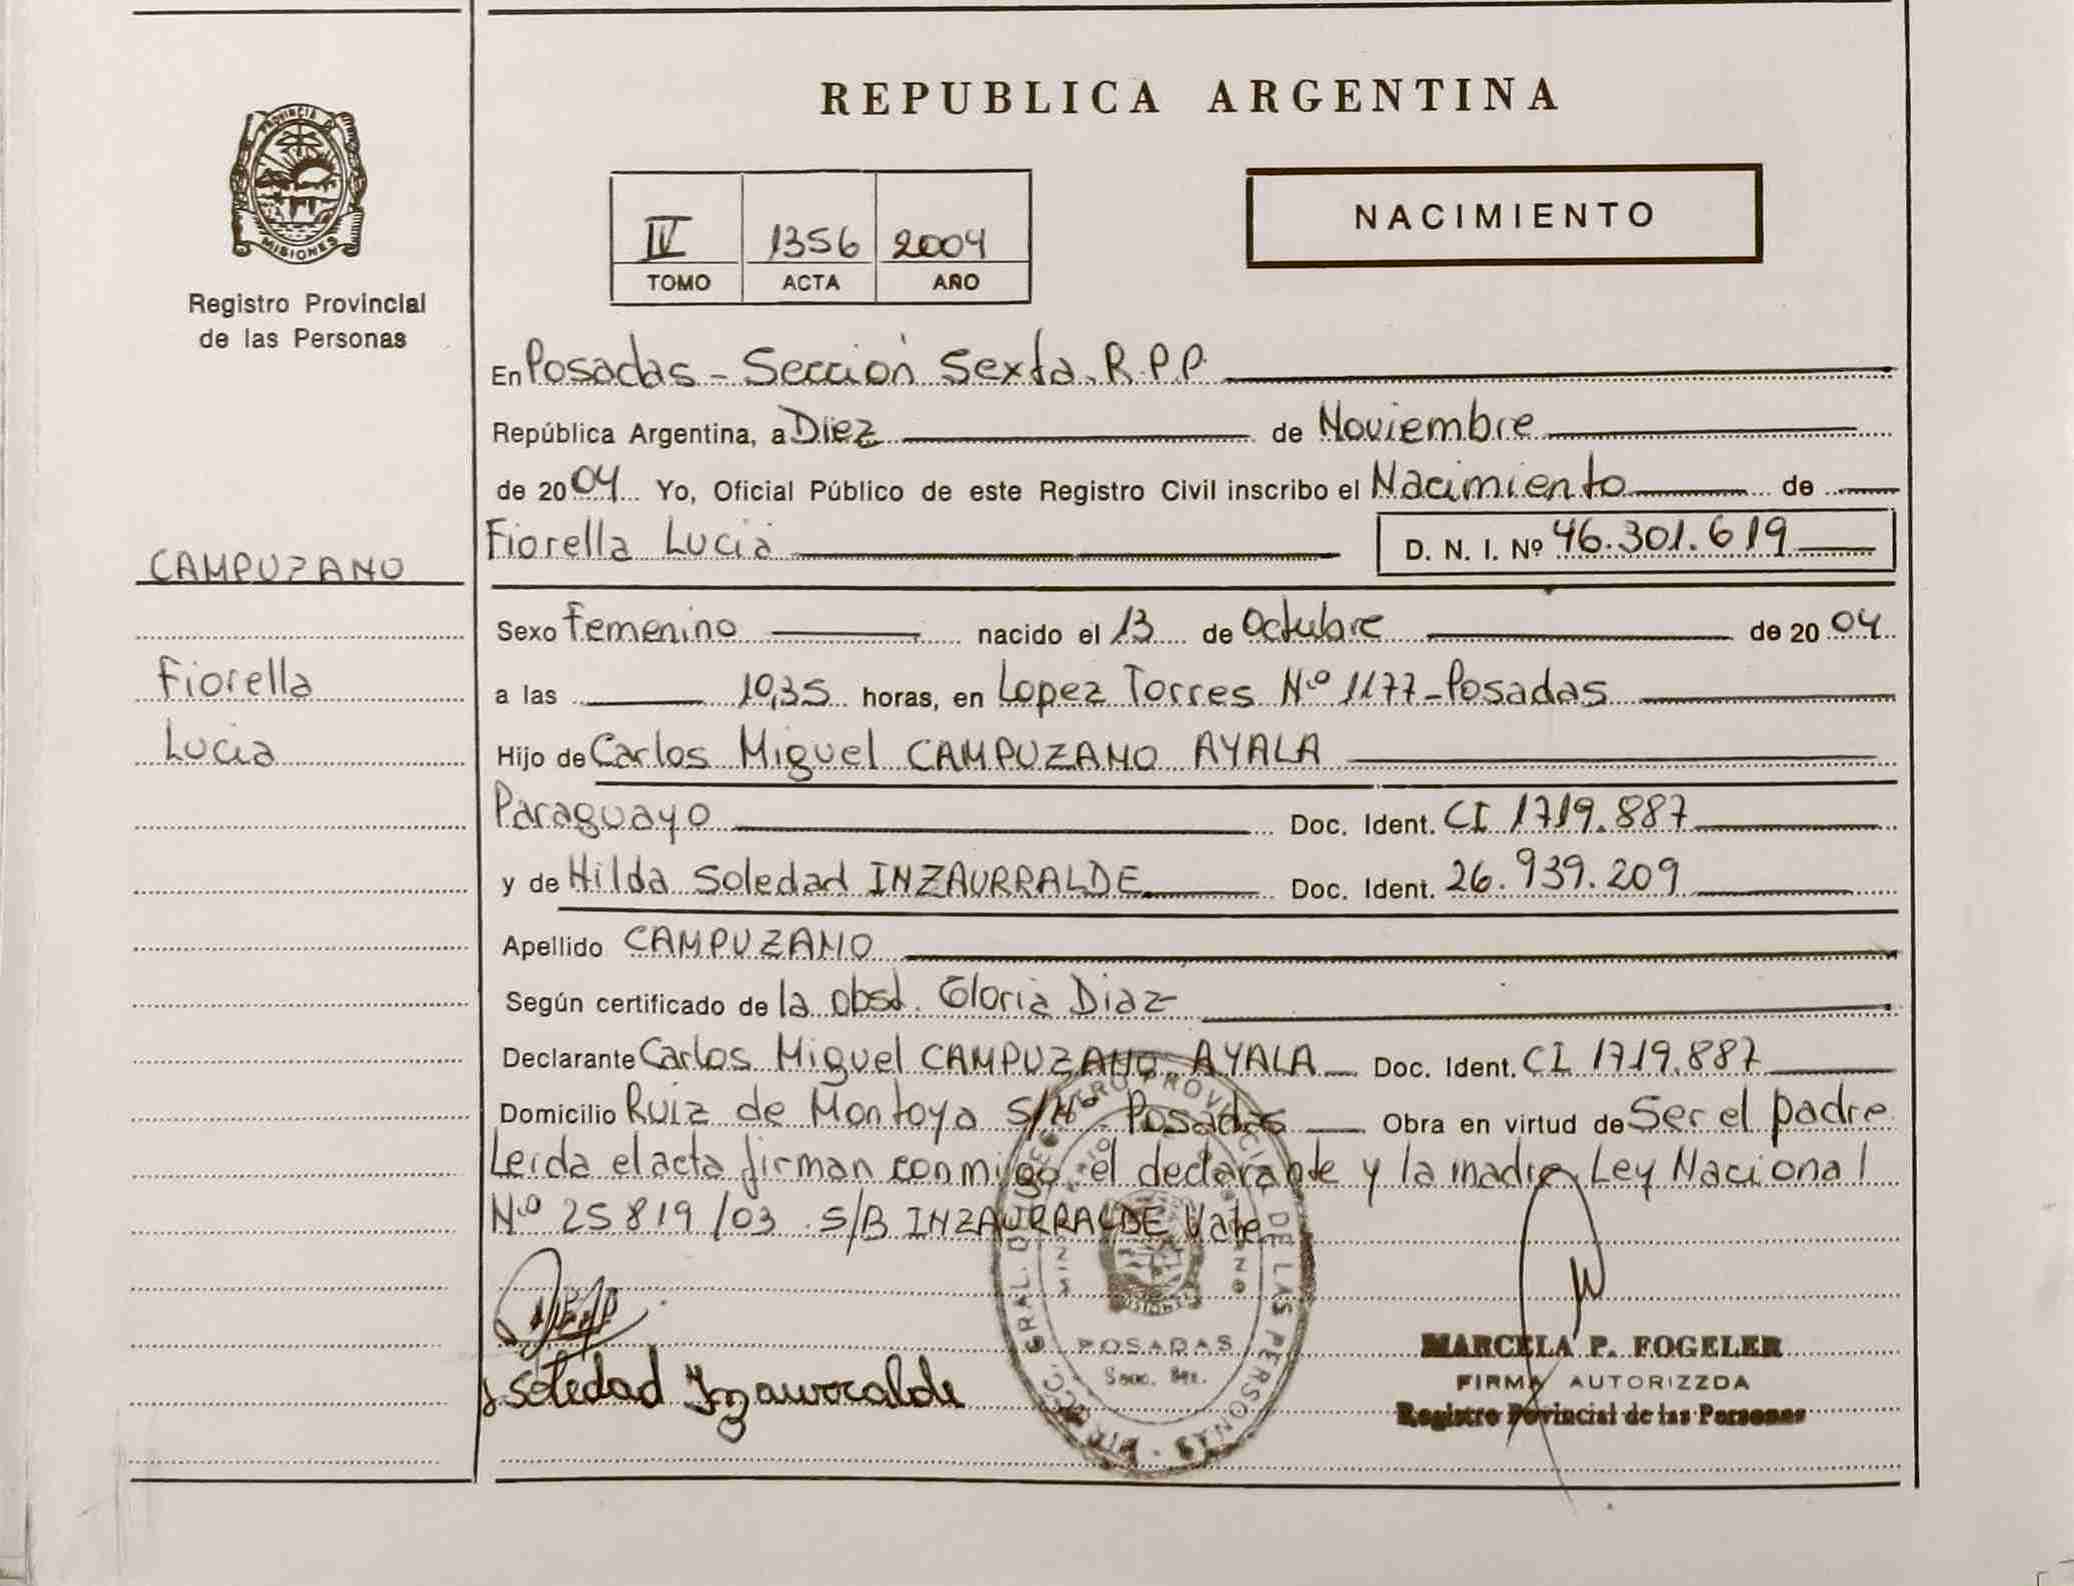 PROVINCIA DE
MISIONES
Registro Provincial
de las Personas
CAMPUZANO
Fiorella
Lucia
REPUBLICA ARGENTINA
IV 1356 2004
TOMO ACTA AÑO
NACIMIENTO
En Posadas - Sección Sexta. R.P.P.
República Argentina, a Diez de Noviembre
de 2004 Yo, Oficial Público de este Registro Civil inscribo el Nacimiento de
Fiorella Lucia D. N. I. Nº 46.301.619
Sexo Femenino nacido el 13 de Octubre de 2004
a las 10,35 horas, en Lopez Torres Nº 1177 - Posadas
Hijo de Carlos Miguel CAMPUZANO AYALA
Paraguayo Doc. Ident. CI 1719.887
y de Hilda Soledad INZAURRALDE Doc. Ident. 26.939.209
Apellido CAMPUZANO
Según certificado de la obst. Gloria Diaz
Declarante Carlos Miguel CAMPUZANO AYALA Doc. Ident. CI 1719.887
Domicilio Ruiz de Montoya S/Nº - Posadas Obra en virtud de Ser el padre
Leída el acta firman conmigo el declarante y la madre Ley Nacional
Nº 25819/03 S/B INZAURRALDE Vale
Soledad Inzaurralde
DE LAS PERSONAS
POSADAS
MARCELA P. FOGELER
FIRMA AUTORIZZDA
Registro Provincial de las Personas